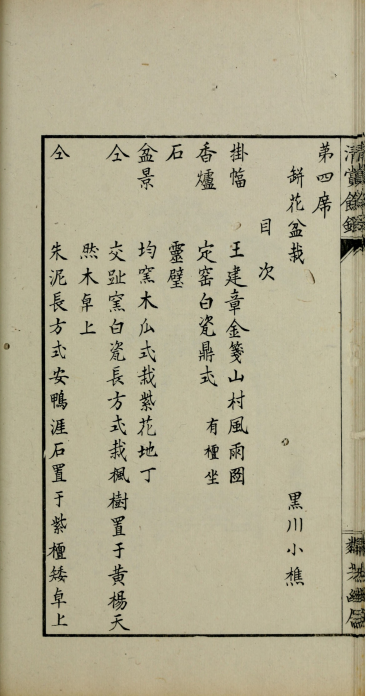 第四席
缾花盆栽　黒川小樵
目次
掛幅　王建章金箋山村風雨圖
香爐　定窑白瓷鼎式　有檀坐
石　靈璧
盆景　均窑木瓜式栽紫花地丁
仝　交趾窑白瓷長方式栽楓樹置于黃楊天
然木卓上
仝　朱泥長方式安鴨涯石置于紫檀矮卓上